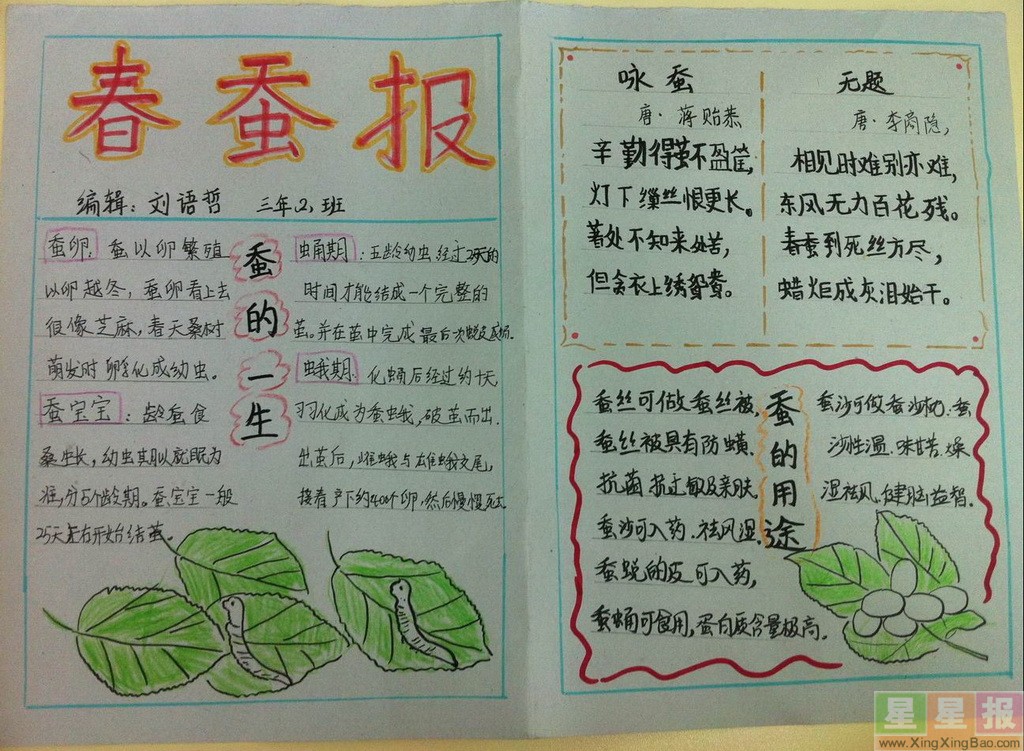 春蚕报
编辑：刘语哲 三年.2.班
蚕的一生
蚕卵：蚕以卵繁殖
以卵越冬，蚕卵看上去
很像芝麻，春天桑树
萌发时孵化成幼虫。
蚕宝宝：龄蚕食
桑生长，幼虫期以就眠为
准，分5个龄期。蚕宝宝一般
25天左右开始结茧。
蛹期：五龄幼虫经过2天的
时间才能结成一个完整的
茧。并在茧中完成最后次蜕皮成蛹.
蛾期：化蛹后经过约十天,
羽化成为蚕蛾，破茧而出.
出茧后，雌蛾与雄蛾交尾，
接着产下约400个卵，然后慢慢死去.
咏蚕
唐·蒋贻恭
辛勤得茧不盈筐，
灯下缫丝恨更长。
著处不知来处苦，
但贪衣上绣鸳鸯。
无题
唐·李商隐，
相见时难别亦难，
东风无力百花残。
春蚕到死丝方尽，
蜡炬成灰泪始干。
蚕的用途
蚕丝可做蚕丝被，
蚕丝被具有防螨.
抗菌.抗过敏及亲肤.
蚕沙可入药.祛风湿.
蚕蜕的皮可入药，
蚕蛹可食用，蛋白质含量极高.
蚕沙可做蚕沙枕.蚕
沙性温.味甘苦.燥
湿祛风.健脑益智.
星星报
www.XingXingBao.com